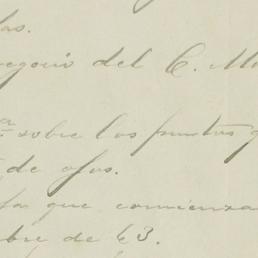 las.
egorio del C. Mo
sobre los puntos q
de ofos.
fa que comienza
bre de 63.